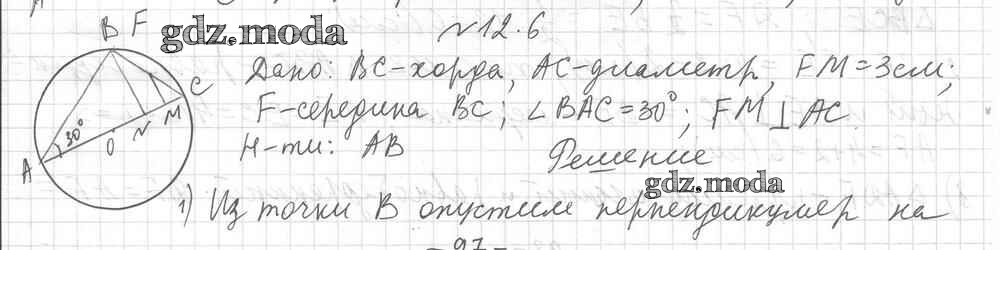 N12.6
gdz.moda
B F
Дано: BC-хорда, AC-диаметр, FM=3см;
F-середина BC; ∠BAC=30°; FM⊥AC.
Н-ти: AB
Решение
gdz.moda
A 30° O N M C
1) Из точки B опустим перпендикуляр на
-97-